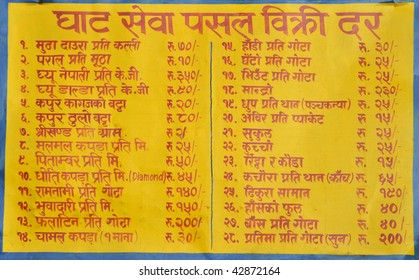 घाट सेवा पसल विक्री दर
१. मुढा दाउरा प्रति क्विन्टल रु. ७०/-
२. पराल प्रति मुठा रु. १०/-
३. घ्यू नेपाली प्रति के.जी. रु. ३५०/-
४. घ्यू डाल्डा प्रति के.जी. रु. ८५०/-
५. कपुर कागजको बट्टा रु. २०/-
६. कपुर ठुलो बट्टा रु. ८०/-
७. श्रीखण्ड प्रति ग्राम रु. २/-
८. मलमल कपडा प्रति मि. रु. २५/-
९. पिताम्बर प्रति मि. रु. ५०/-
१०. धोति कपडा प्रति मि. (Diamond) रु. ४५/-
११. रामनामी प्रति गोटा रु. १४०/-
१२. भुवादारी प्रति मि. रु. १५०/-
१३. फलाटिन प्रति गोटा रु. २००/-
१४. चामल कपडा (१ माना) रु. ३०/-
१५. हाँडी प्रति गोटा रु. ३०/-
१६. घैंटो प्रति गोटा रु. २५/-
१७. भिउँट प्रति गोटा रु. २५/-
१८. सान्द्रो रु. २६०/-
१९. धुप प्रति थान (पञ्चकन्या) रु. २५/-
२०. अविर प्रति प्याकेट रु. १५/-
२१. सुकुल रु. २५/-
२२. कुच्चो रु. २५/-
२३. रिट्ठा र कोंडा रु. १५/-
२४. कचौरा प्रति थान (काँच) रु. ६५/-
२५. टिकुरा सामान रु. १८०/-
२६. हाँसको फुल रु. ४०/-
२७. बाँस प्रति गोटा रु. ४०/-
२८. प्रतिमा प्रति गोटा (सुन) रु. २००/-
www.shutterstock.com · 42872164